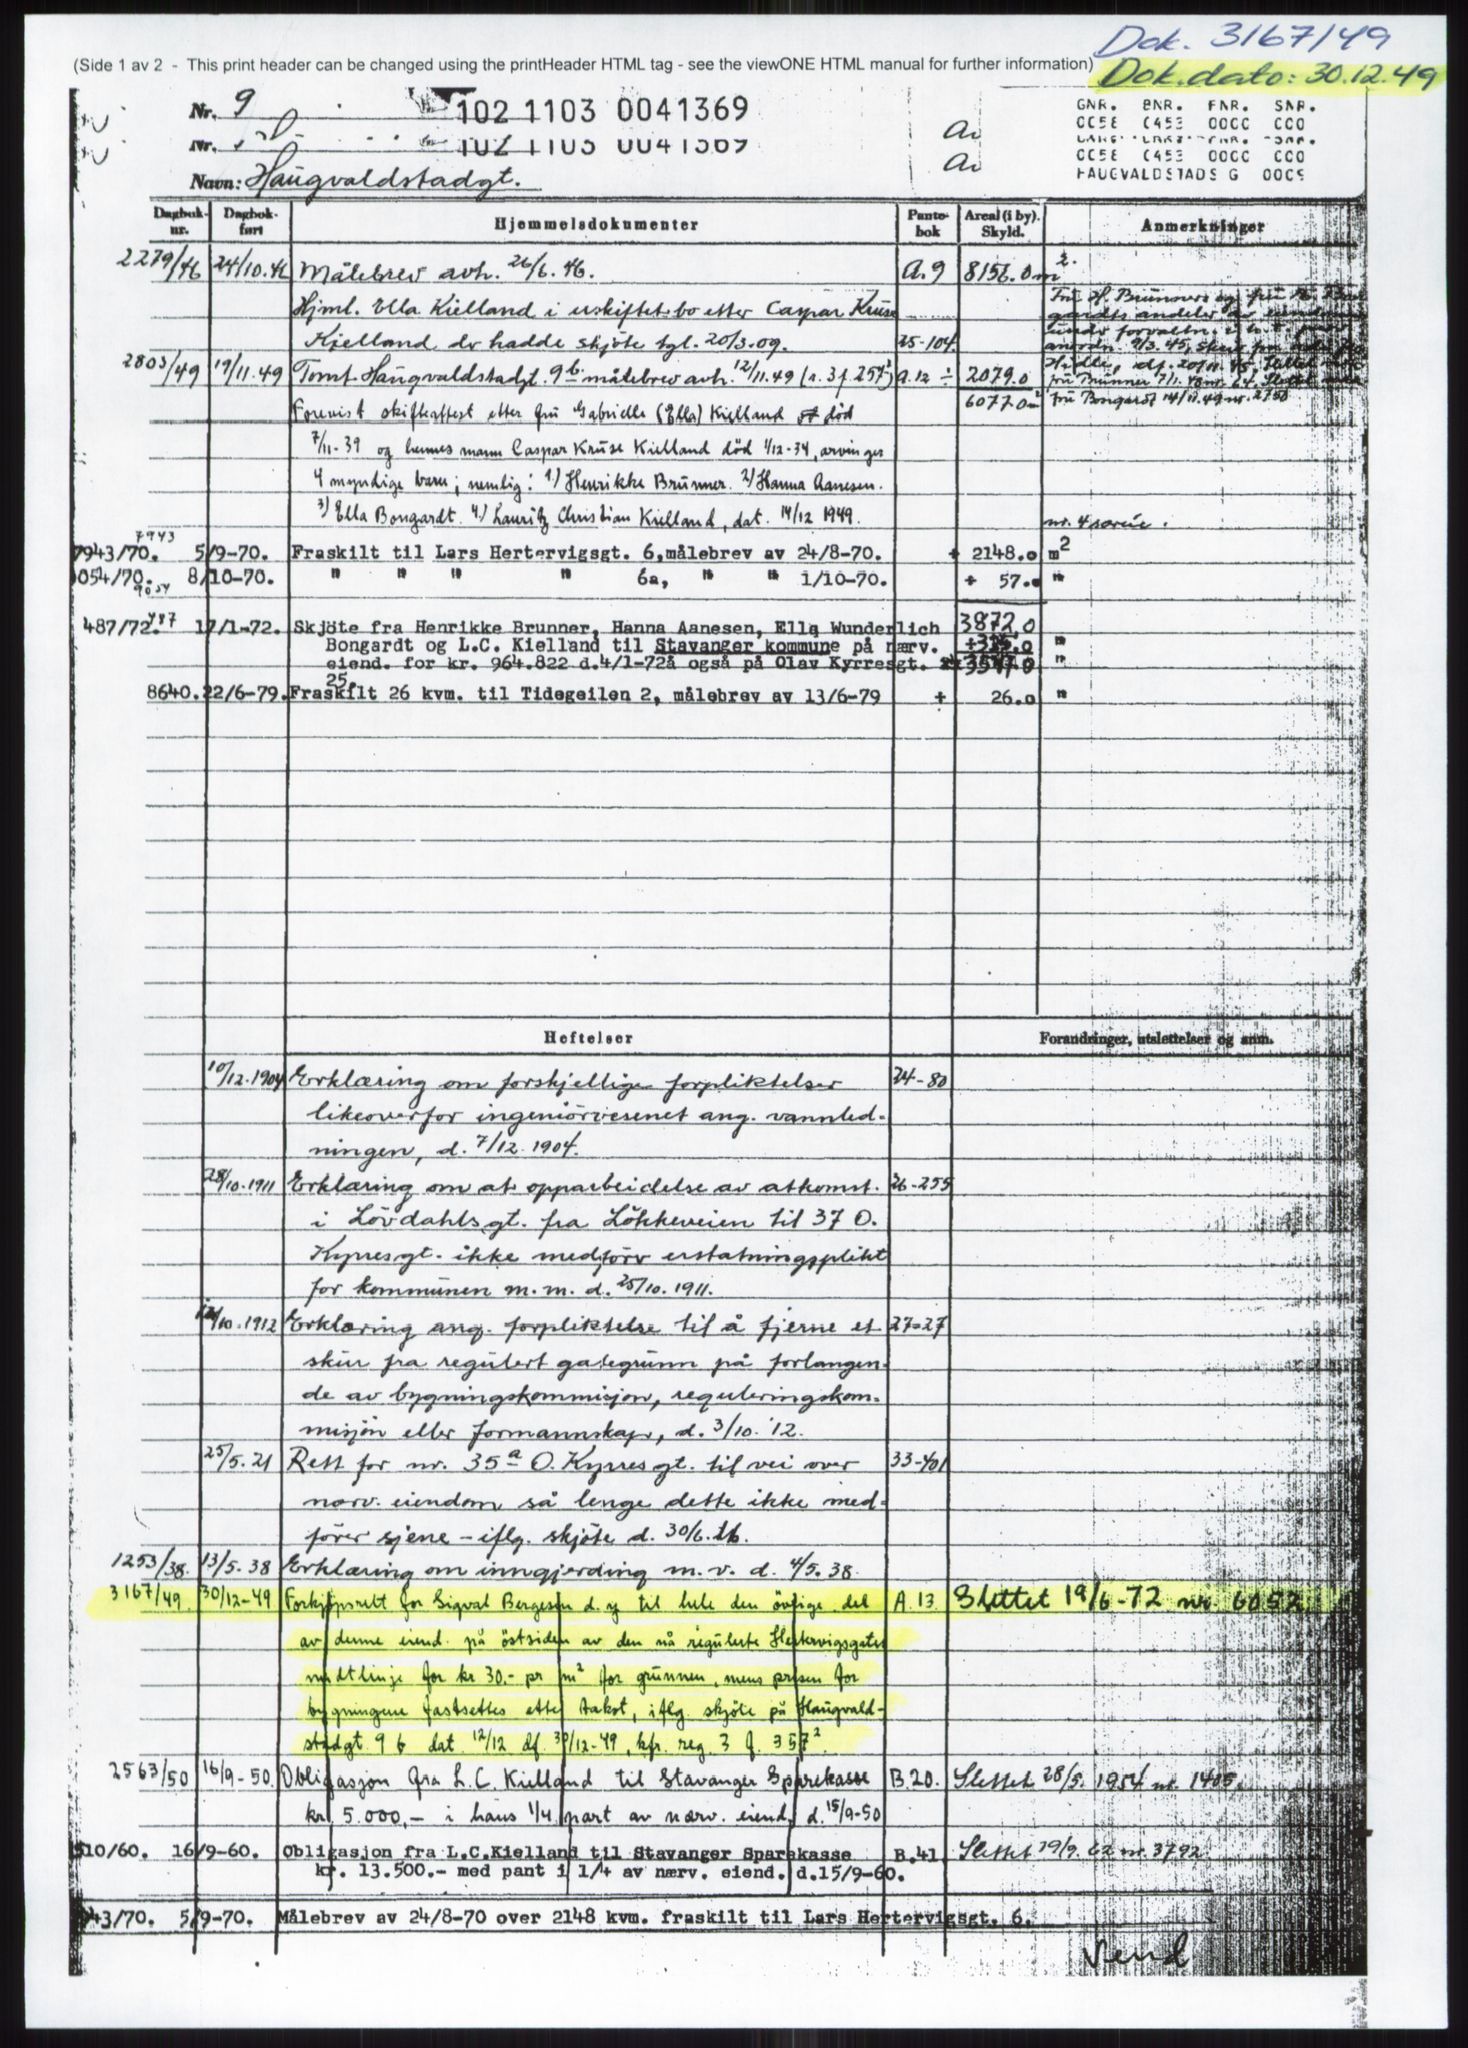 Dok. 3167/49
(Side 1 av 2 - This print header can be changed using the printHeader HTML tag - see the viewONE HTML manual for further information)
Dok.dato: 30.12.49
Nr. 9 102 1103 0041369
GNR. BNR. FNR. SNR.
0058 0453 0000 000
Nr. 102 1103 0041369
0058 0453 0000 000
Navn: Haugvaldstadgt.
HAUGVALDSTADS G 0009
Dagbok- nr. Dagbok- ført Hjemmelsdokumenter Pante- bok Areal (i by). Skyld. Anmerkninger
2279/46 24/10.46 Målebrev avh. 26/6.46. A.9 8156.0 m2.
Hjml. Ella Kielland i uskiftet bo etter Caspar Kruse
Kielland der hadde skjöte tgl. 20/3.09. 25-104
2803/49 19/11.49 Tomt Haugvaldstadgt. 9b. målebrev avh. 12/11.49 (r. 3 f. 257²) A.12 ÷ 2079.0
6077.0
Forevist skifteattest etter fru Gabrielle (Ella) Kielland död
7/11-39 og hennes mann Caspar Kruse Kielland död 1/12-34, arvinger
4 myndige barn; nemlig: 1) Henrikke Brunner. 2) Hanna Aanesen.
3) Ella Bongardt. 4) Lauritz Christian Kielland, dat. 14/12 1949.
7943
7943/70. 5/9-70. Fraskilt til Lars Hertervigsgt. 6, målebrev av 24/8-70. ÷ 2148.0 m2
054/70. 8/10-70. " " " " 6a, " " 1/10-70. ÷ 57.0 "
9054
487/72. 487 17/1-72. Skjöte fra Henrikke Brunner, Hanna Aanesen, Ella Wunderlich 3872.0
Bongardt og L.C. Kielland til Stavanger kommune på nærv. "
eiend. for kr. 964.822 d.4/1-72å også på Olav Kyrresgt. "
25.
8640. 22/6-79. Fraskilt 26 kvm. til Tidegeilen 2, målebrev av 13/6-79 ÷ 26.0 "
Heftelser Forandringer, utslettelser og anm.
10/12.1904 Erklæring om forskjellige forpliktelser 24-80
likeoverfor ingeniörvesenet ang. vannled-
ningen, d. 7/12.1904.
28/10.1911 Erklæring om at opparbeidelse av atkomst. 26-255
i Lövdahlsgt. fra Lökkeveien til 37 O.
Kyrresgt. ikke medförer erstatningsplikt
for kommunen m.m. d. 25/10.1911.
/10.1912 Erklæring ang. forpliktelse til å fjerne et 27-27
skur fra regulert gategrunn på forlangen-
de av bygningskommisjon, reguleringskom-
misjon eller formannskap, d. 3/10.'12.
25/5.21 Rett for nr. 35a O. Kyrresgt. til vei over 33-401
nærv. eiendom så lenge dette ikke med-
förer sjene - iflg. skjöte d. 30/6.16.
1253/38. 13/5.38 Erklæring om inngjerding m.v. d. 4/5.38.
3167/49. 30/12-49 Forkjöpsrett for Sigval Bergesen d.y til hele den övrige del A.13 Slettet 19/6-72 nr. 6052
av denne eiend. på östsiden av den nå regulerte Hertervigsgates
midtlinje for kr 30.- pr m² for grunnen, mens prisen for
bygningene fastsettes etter takst, iflg. skjöte på Haugvald-
stadgt. 9 b dat. 12/12 df. 30/12-49, kfr. reg. 3 f. 357²
2563/50 16/9-50. Obligasjon fra L.C. Kielland til Stavanger Sparekasse B.20. Slettet 28/5.1954 nr. 1405.
kr. 5.000,- i hans 1/4 part av nærv. eiend. d. 15/9-50
510/60. 16/9-60. Obligasjon fra L.C.Kielland til Stavanger Sparekasse B.41. Slettet 29/9.62 nr. 3792.
kr. 13.500.- med pant i 1/4 av nærv. eiend. d.15/9-60.
43/70. 5/9-70. Målebrev av 24/8-70 over 2148 kvm. fraskilt til Lars Hertervigsgt. 6.
Vend